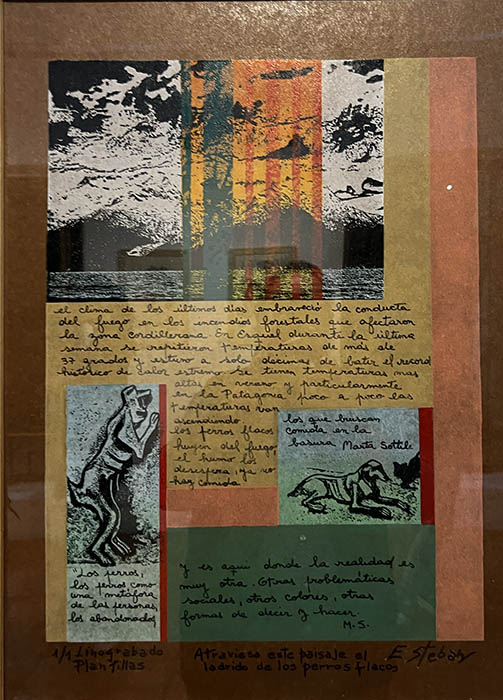 el clima de los últimos días embraveció la conducta
del fuego en los incendios forestales que afectaron
la zona cordillerana. En Esquel durante la última
semana se registraron temperaturas de más de
37 grados y estuvo a solo décimas de batir el record
histórico de calor extremo. Se tienen temperaturas mas
altas en verano y particularmente
en la Patagonia poco a poco las
temperaturas van
ascendiendo
los perros flacos
huyen del fuego
el humo los
desespera, ya no
hay comida
los que buscan
comida en la
basura Marta Sottile
"Los perros,
los perros como
una metáfora
de las personas
los abandonados
y es aquí donde la realidad es
muy otra. Otras problemáticas
sociales, otros colores, otras
formas de decir y hacer.
M.S.
1/1 Linograbado
Plantillas
Atraviesa este paisaje el
ladrido de los perros flacos
Esteban